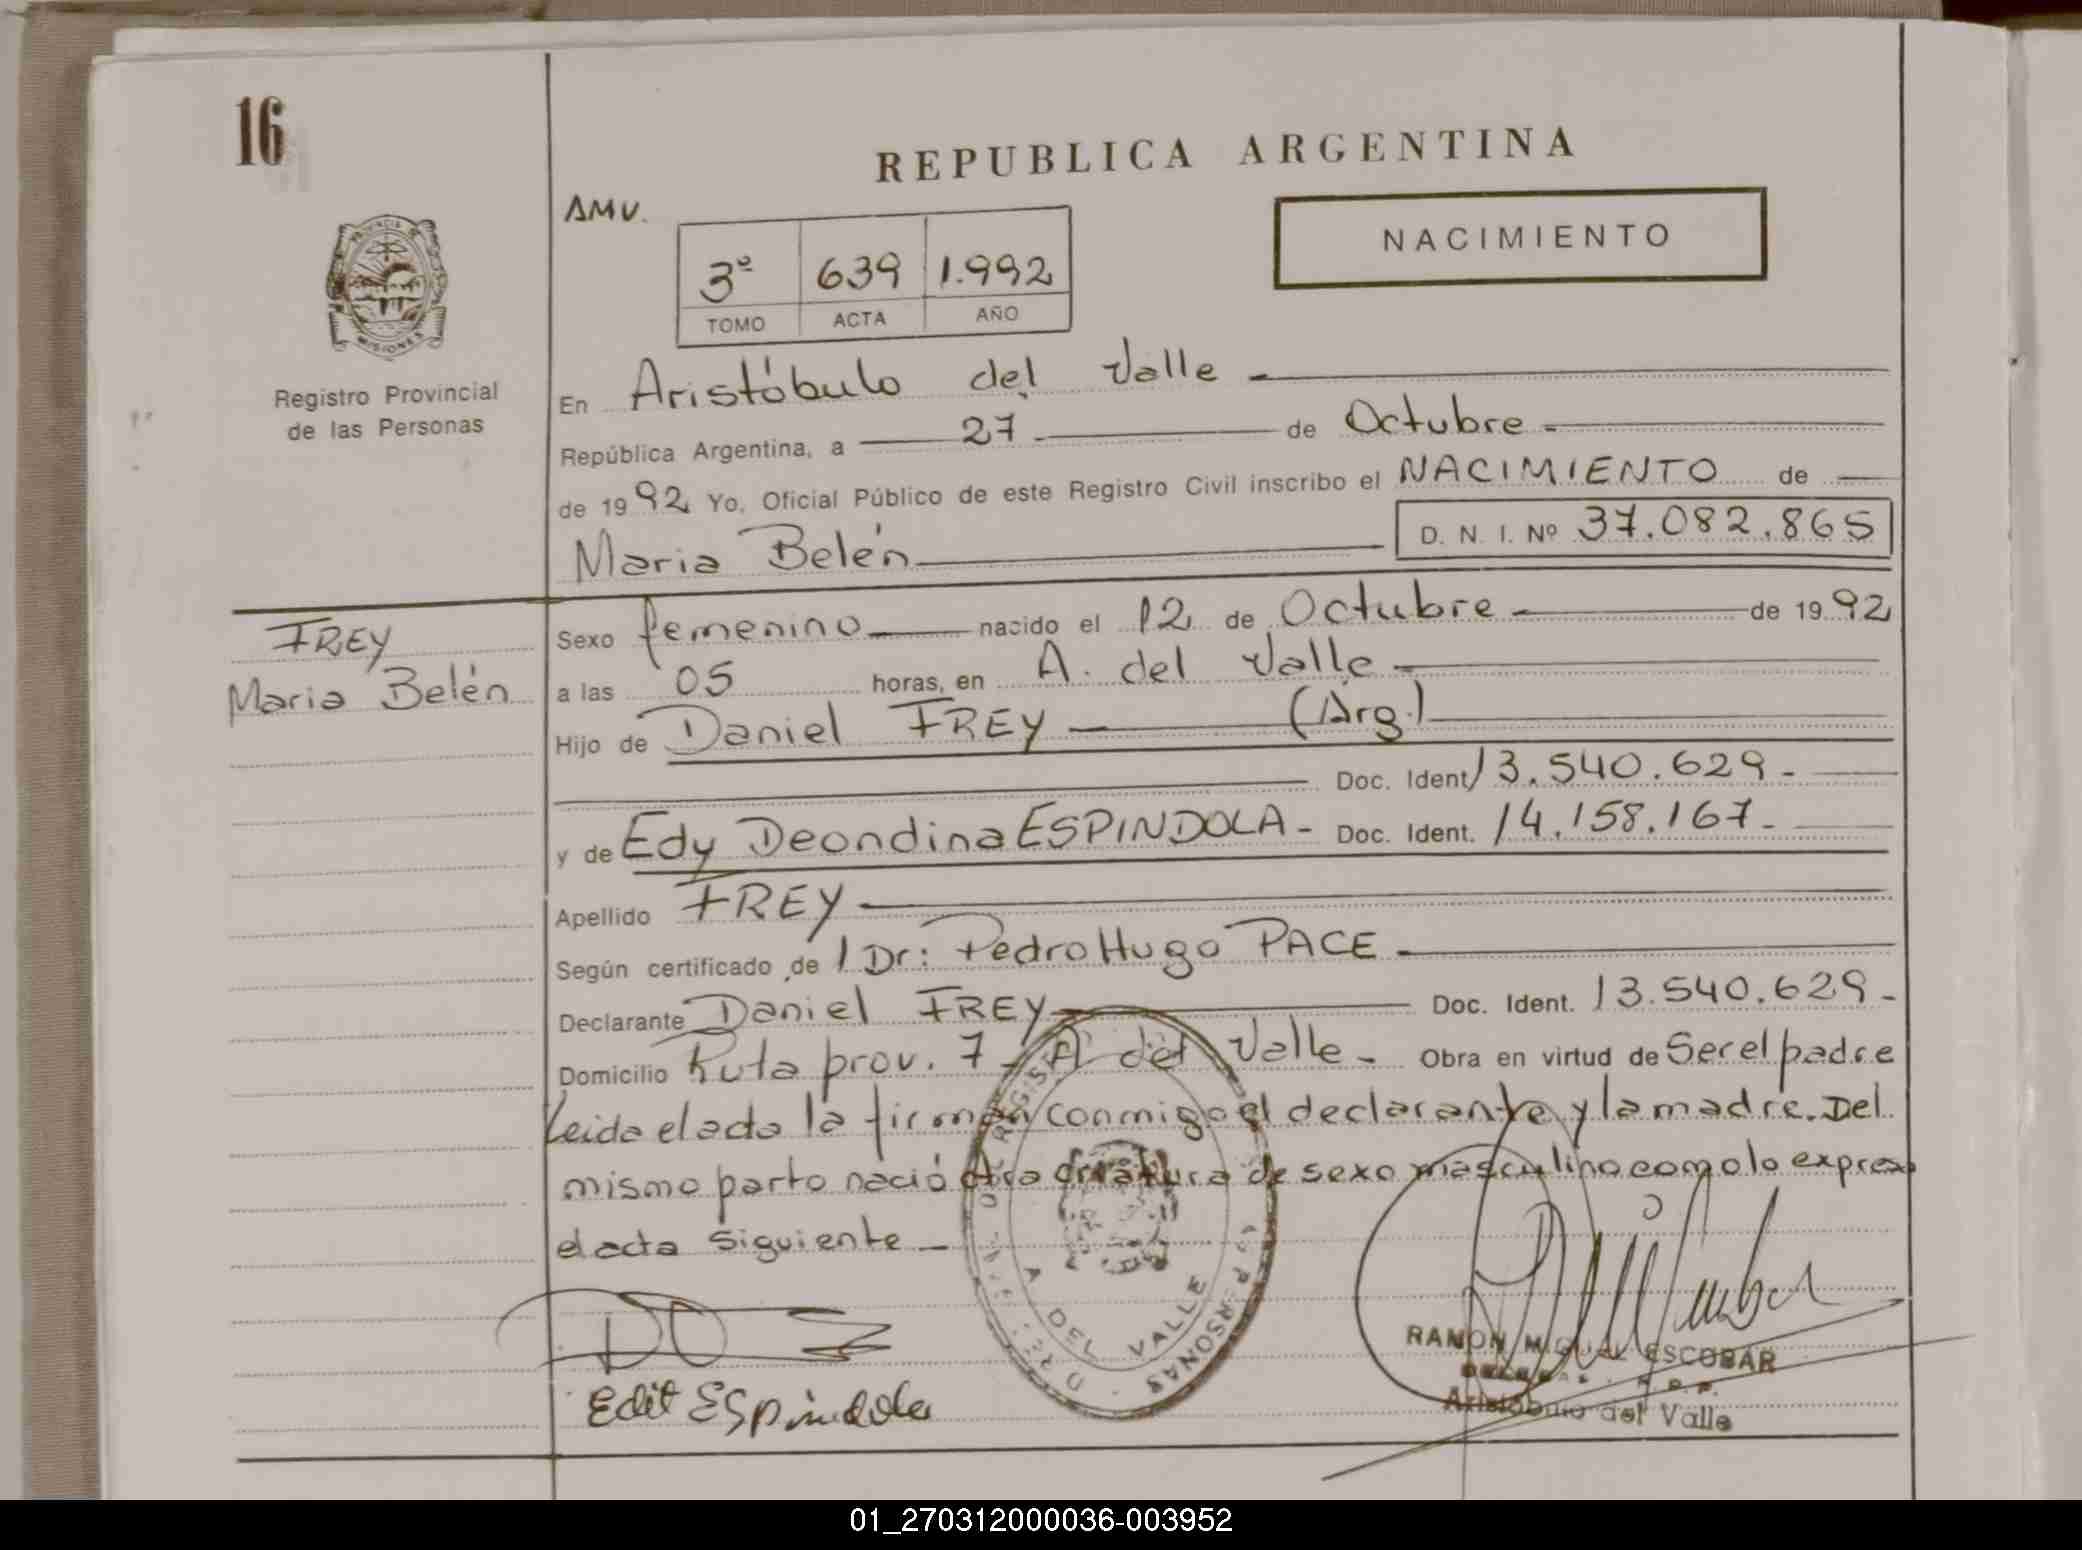 16
REPUBLICA ARGENTINA
AMV.
NACIMIENTO
3º 639 1.992
TOMO ACTA AÑO
PROVINCIA DE
MISIONES
Registro Provincial
de las Personas
En Aristóbulo del Valle
República Argentina, a 27 de Octubre
de 1992 Yo, Oficial Público de este Registro Civil inscribo el NACIMIENTO de
Maria Belén D. N. I. Nº 37.082.865
FREY
Maria Belén
Sexo femenino nacido el 12 de Octubre de 1992
a las 05 horas, en A. del Valle
Hijo de Daniel FREY (Arg.)
Doc. Ident. 13.540.629.-
y de Edy Deondina ESPINDOLA - Doc. Ident. 14.158.167.-
Apellido FREY
Según certificado de / Dr: Pedro Hugo PACE
Declarante Daniel FREY Doc. Ident. 13.540.629.-
Domicilio Ruta prov. 7 - A. del Valle - Obra en virtud de Ser el padre
Leida el acta la firman conmigo el declarante y la madre. Del
mismo parto nació otra criatura de sexo masculino como lo expresa
el acta siguiente -
A. DEL VALLE
PERSONAS
Edit Espindola
RAMON MIGUEL ESCOBAR
Aristobulo del Valle
01_270312000036-003952